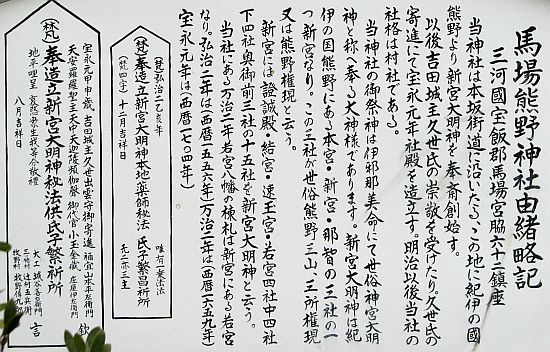 馬場熊野神社由緒略記
三河國宝飯郡馬場宮脇六十二鎮座
当神社は本坂街道に沿いたる、この地に紀伊の國
熊野より新宮大明神を奉斎創始す。
以後吉田城主久世氏の崇敬を受けたり。久世氏の
寄進にて宝永元年社殿を造立す。明治以後当社の
社格は村社である。
当神社の御祭神は伊邪那美命にて世俗神宮大明
神と称へ奉る大神様であります。新宮大明神は紀
伊の国熊野にある本宮・新宮・那智の三社の一
つ新宮なり。この三社が世俗熊野三山、三所権現
又は熊野権現と云う。
新宮には證誠殿・結宮・速玉宮・若宮四社中四社
下四社奥御前三社の十五社を新宮大明神と云う。
当社にある万治二年若宮八幡の棟札は新宮にある若宮
なり。弘治二年は西暦一五五六年万治二年は西暦一六五九年
宝永元年は西暦一七〇四年)
(梵)弘治二亥年 唯有一乗法法
(梵)奉造立新宮大明神本地薬師秘法 氏子繁昌祈所
(梵四字) 十二月吉祥日
(梵)宝永元甲申歳、吉田城主久世出雲守御寄進
天安羅羅聖主天中天迦陵頻伽聲 御代官小玉金蔵
奉造立新宮大明神秘法供氏子繁祈所
地平哩呈 哀愍衆生我等今敬禮
八月吉祥日